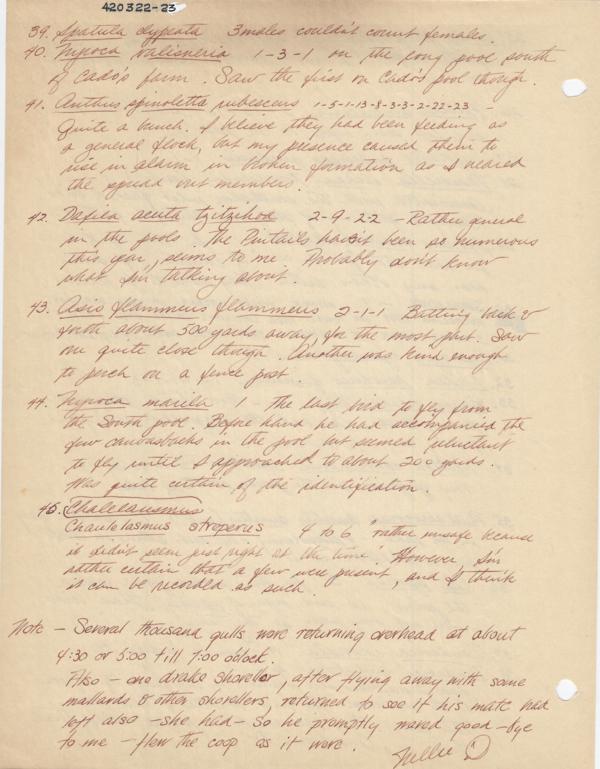 420322-23
39. Spatula clypeata 3 males couldn't count females.
40. Nyroca valisneria 1-3-1 on the long pool south
of Cado's farm. Saw the first on Cado's pool though.
41. Anthus spinoletta rubescens 1-5-1-13-8-3-3-2-22-23 -
Quite a bunch. I believe they had been feeding as
a general flock, but my presence caused them to
rise in alarm in broken formation as I neared
the spread out members.
42. Dafila acuta tzitzihoa 2-9-22 - Rather general
in the pools. The Pintails havn't been so numerous
this year, seems to me. Probably don't know
what I'm talking about.
43. Asio flammeus flammeus 2-1-1 Batting back &
forth about 500 yards away, for the most part. Saw
one quite close though. Another was kind enough
to perch on a fence post.
44. Nyroca marila 1 The last bird to fly from
the South pool. Before hand he had accompanied the
few canvasbacks in the pool but seemed reluctant
to fly until I approached to about 200 yards.
Was quite certain of the identification.
45. Chalelausmus
Chaulelasmus streperus 4 to 6 "rather unsafe because
it didn't seem just right at the time". However, I'm
rather certain that a few were present, and I think
it can be recorded as such.
Note - Several thousand gulls were returning overhead at about
4:30 or 5:00 till 7:00 o'clock.
Also - one drake shoveller, after flying away with some
mallards & other shovellers, returned to see if his mate had
left also - she had - So he promptly waved good-bye
to me - flew the coop as it were.
Nellie D